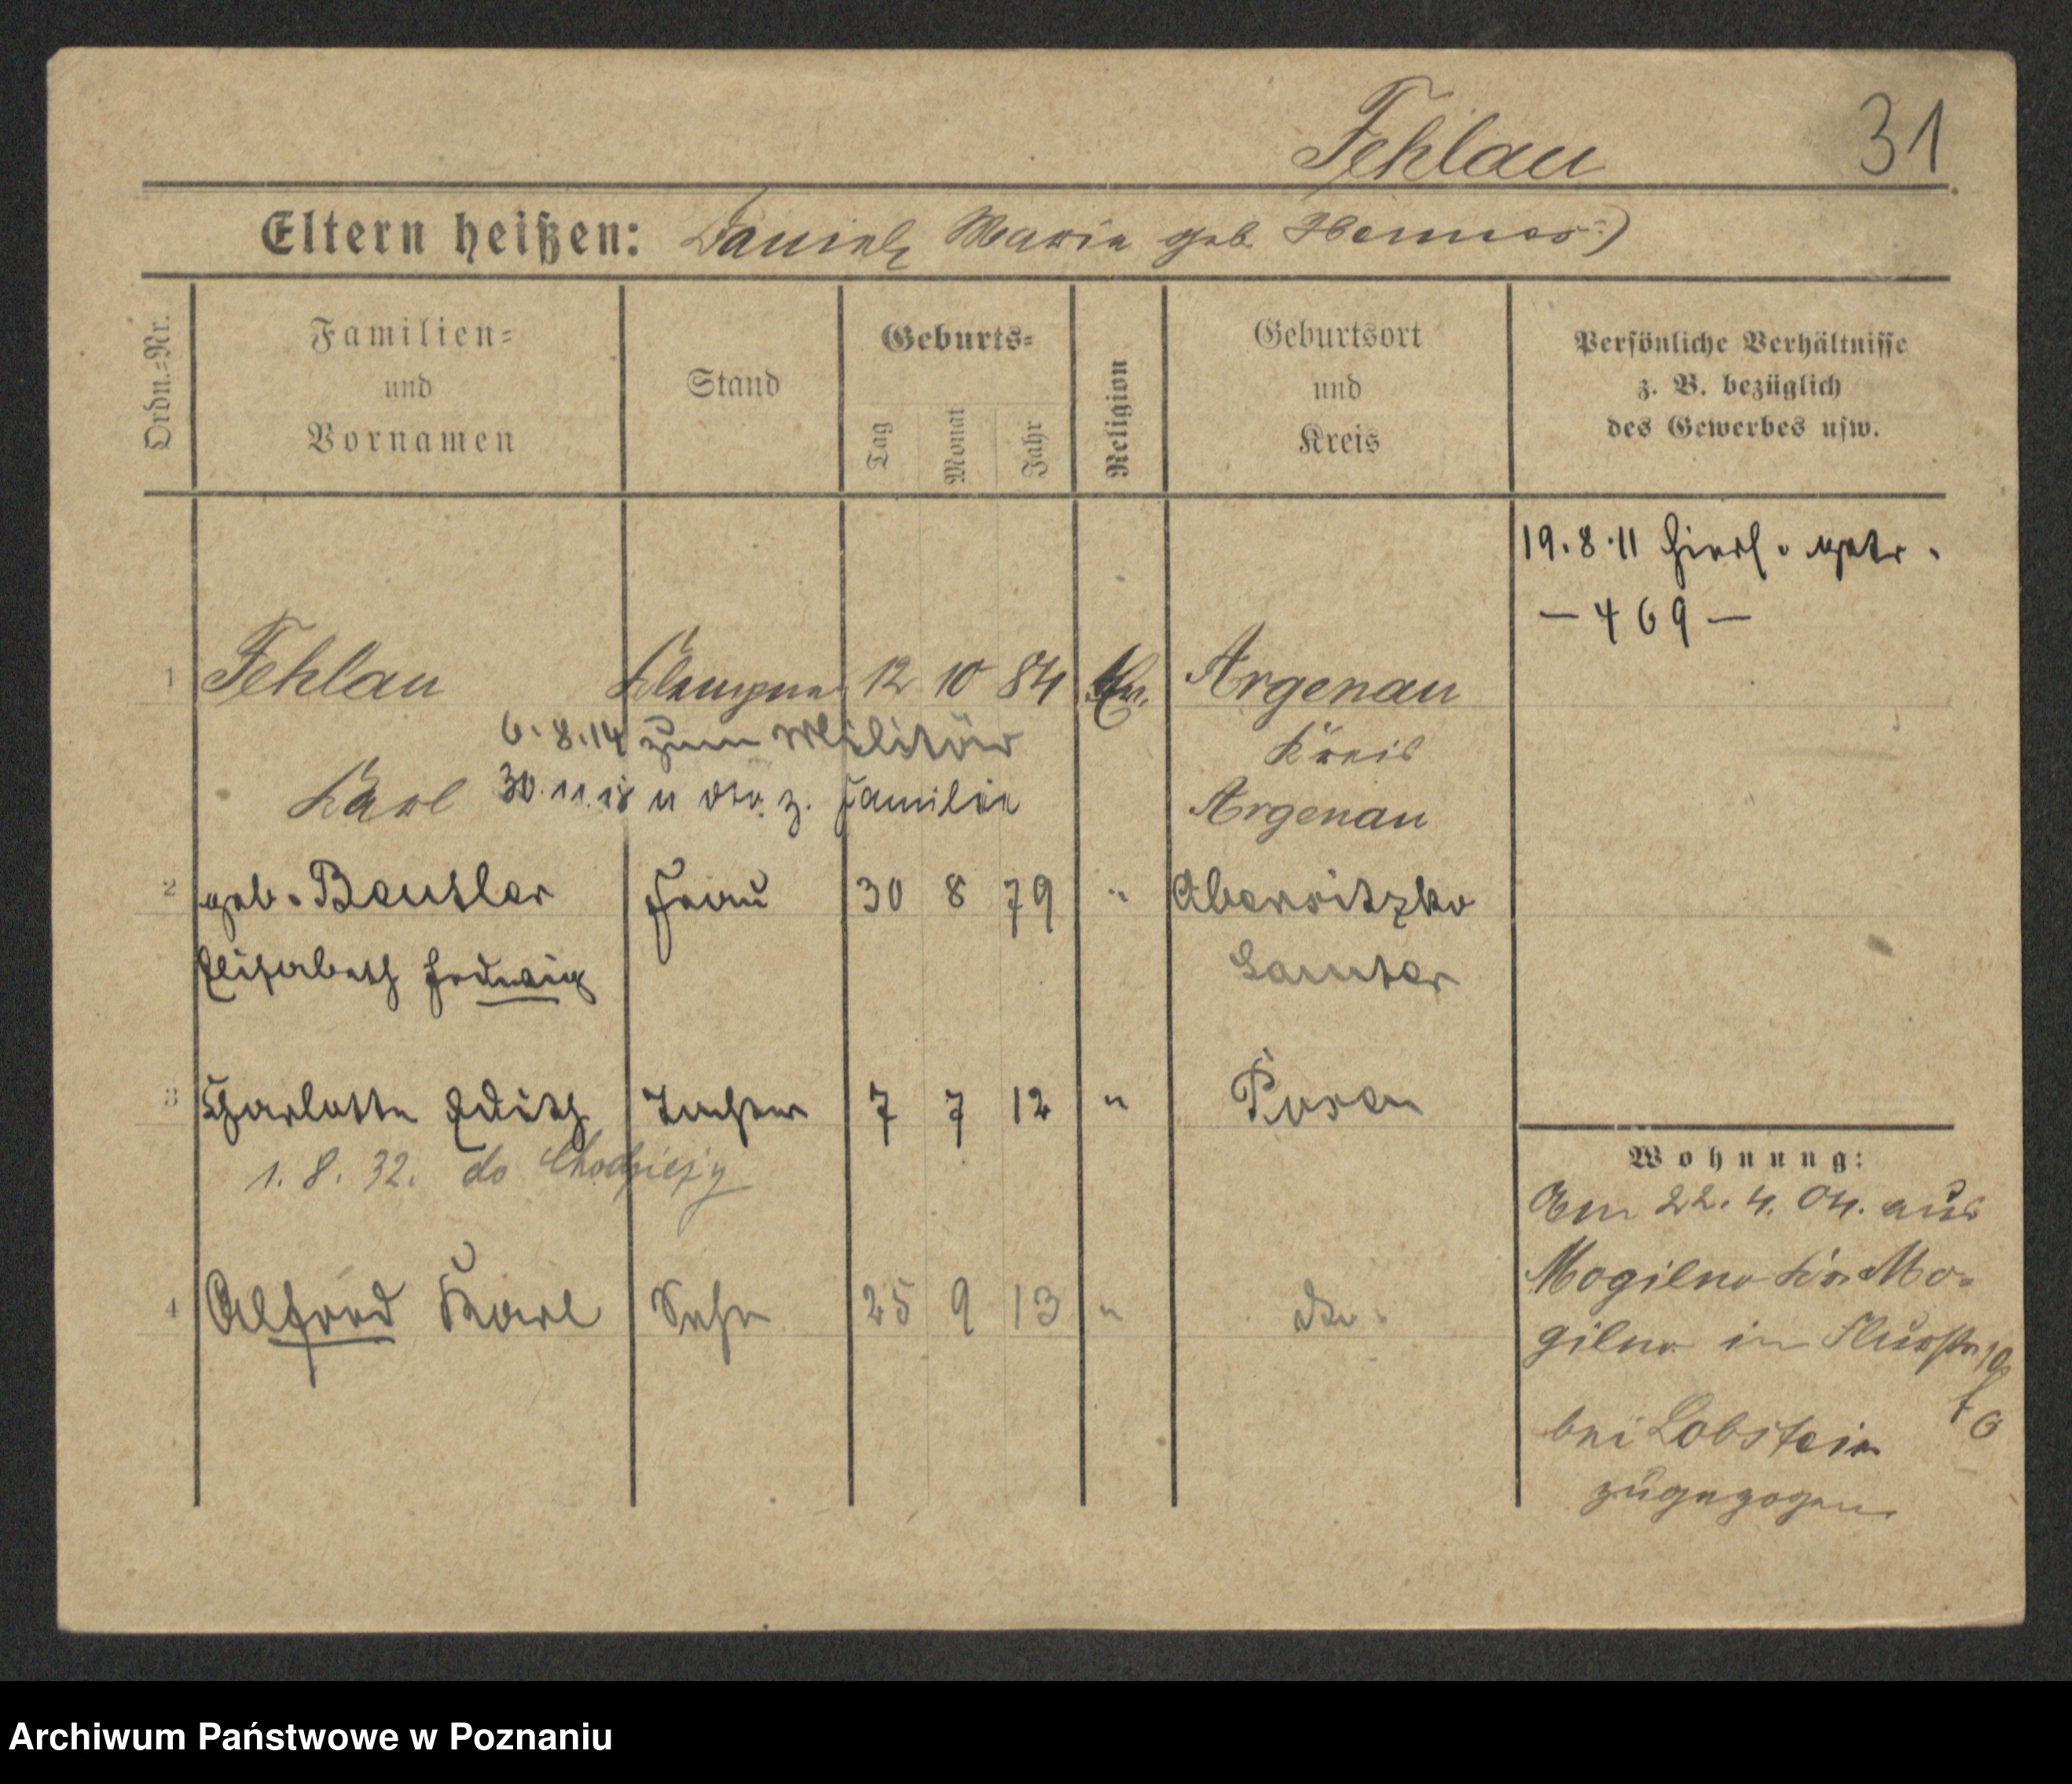 Fehlau 31
Eltern heißen: Daniel, Maria geb.
Ordn.-Nr.
Familien-
und
Vornamen
Stand
Geburts-
Tag
Monat
Jahr
Religion
Geburtsort
und
Kreis
Persönliche Verhältnisse
z. B. bezüglich
des Gewerbes usw.
19.8.11 hierf. getr.
— 469 —
1 Fehlau Klempner 12 10 84 Argenau
6.8.14 zum Militär
Kreis
Karl 30.11.18 z. Familie
Argenau
2 geb. Beutler Frau 30 8 79 "
Elisabeth Hedwig
Samter
3 Charlotte Edith Tochter 7 7 12 " Posen
1. 8. 32. do Chodzieży
4 Alfred Karl Sohn 25 9 13 " do.
Wohnung:
Am 22. 4. 04. aus
Mogilno Kr. Mo-
gilno in
bei Lobstein
zugezogen.
Archiwum Państwowe w Poznaniu